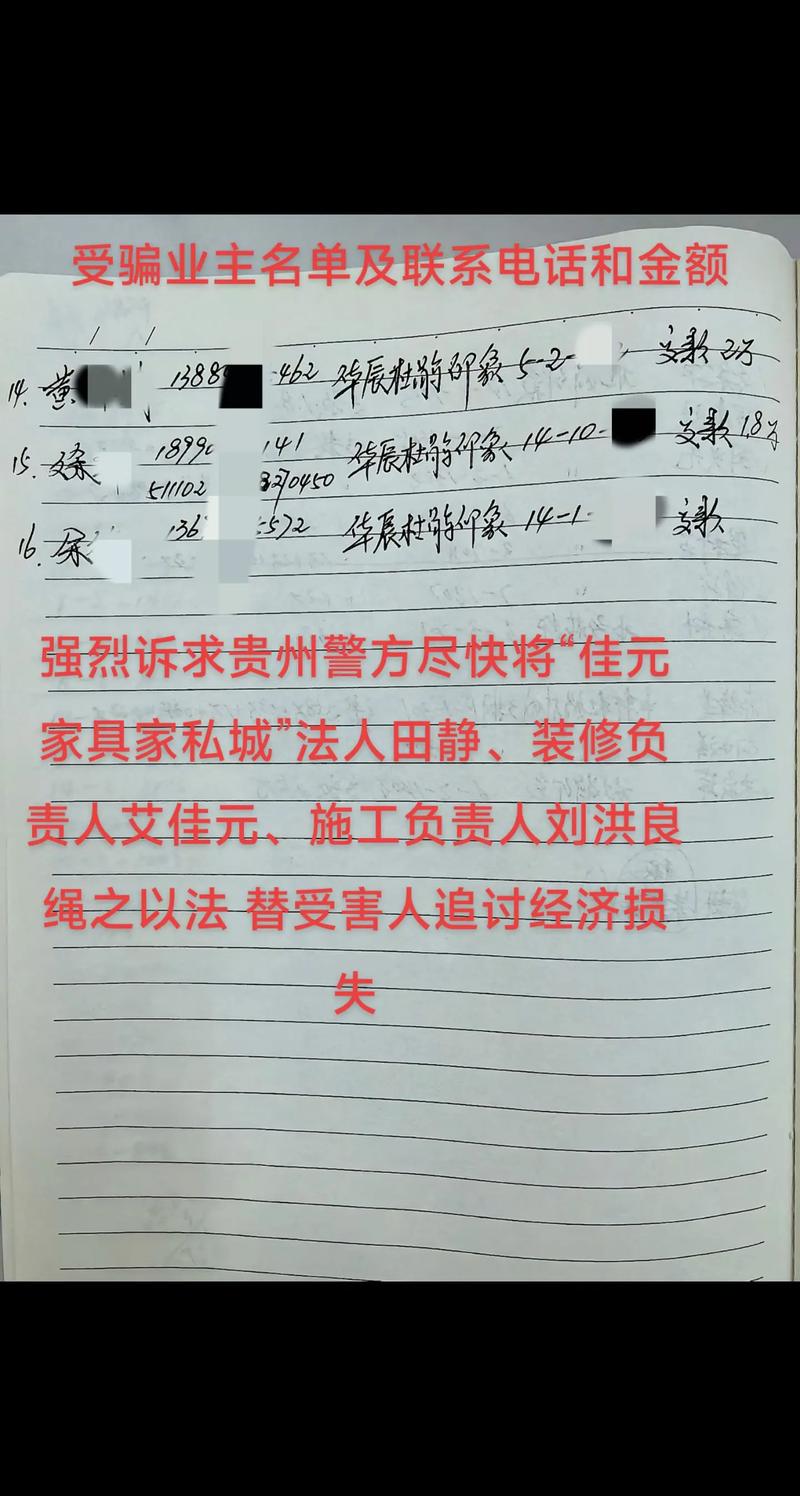 受骗业主名单及联系电话和金额
14. 黄 1388 462 华辰杜鹃印象 5-2- 交款 2万
15. 1899 141 华辰杜鹃印象 14-10- 交款 1.8万
511102 3270450
16. 余 136 572 华辰杜鹃印象 14-1- 交款
强烈诉求贵州警方尽快将“佳元
家具家私城”法人田静、装修负
责人艾佳元、施工负责人刘洪良
绳之以法 替受害人追讨经济损
失